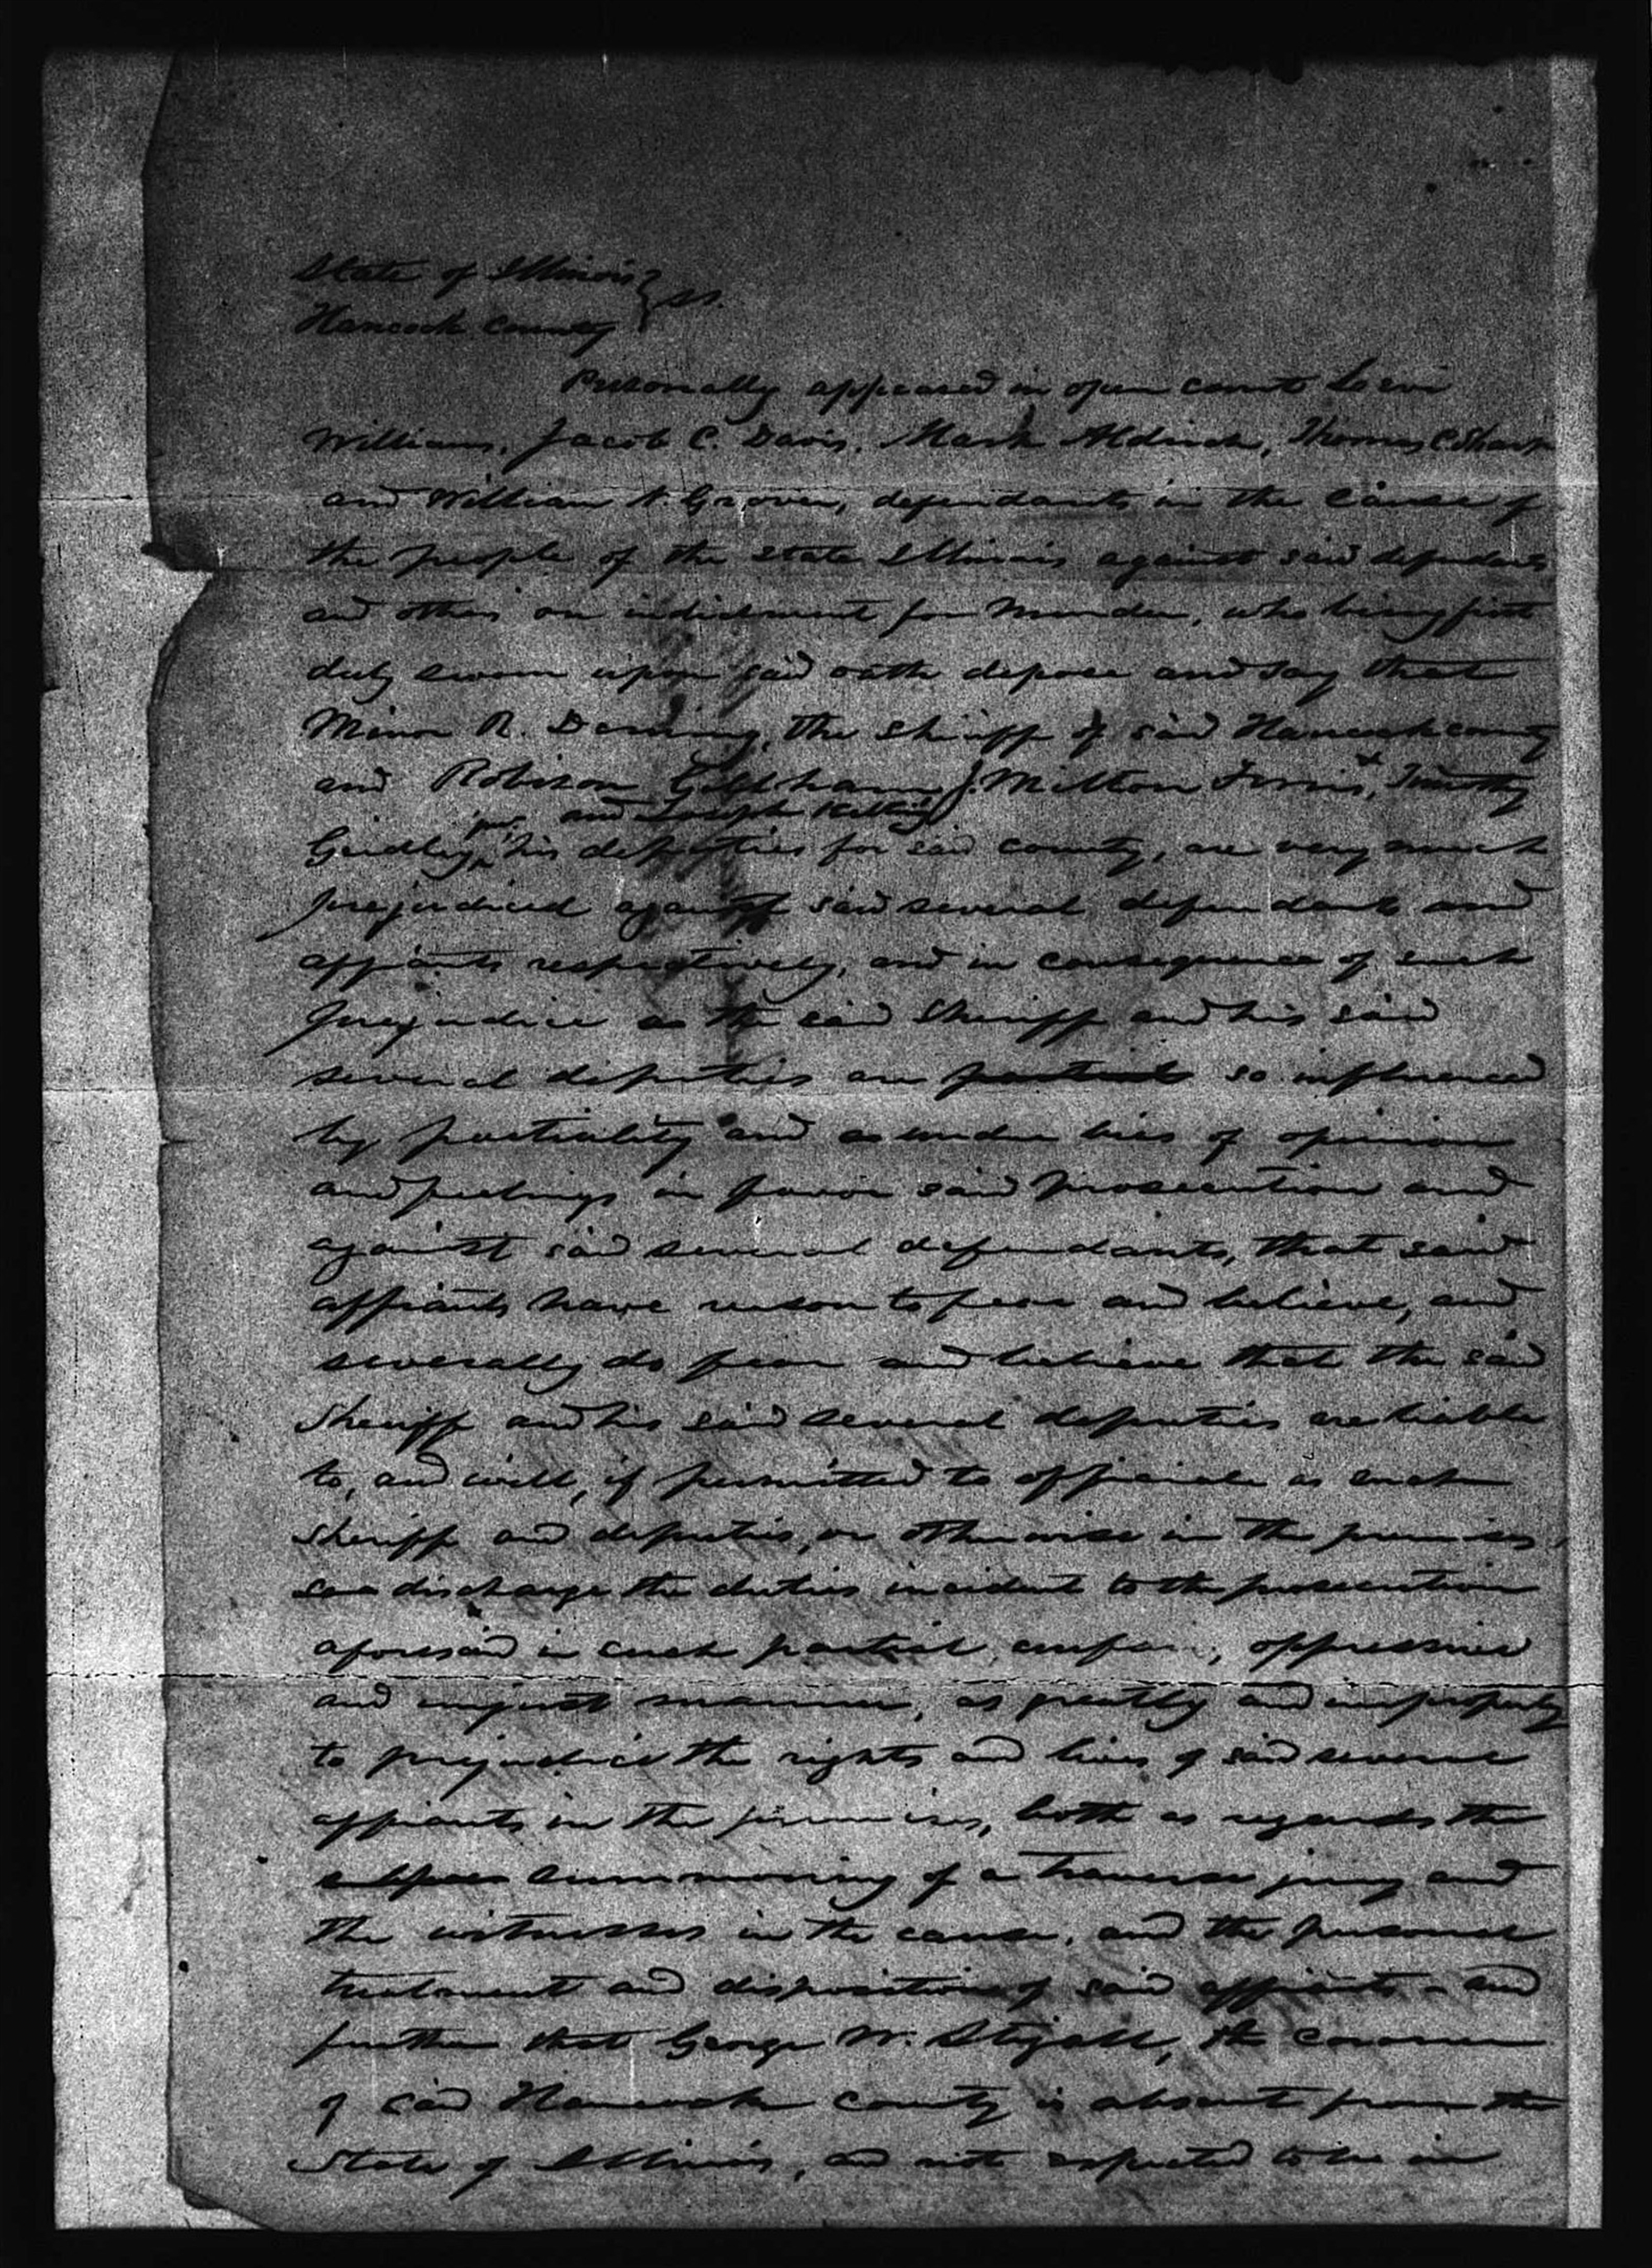 State of Illinois }
Hancock County } ss.
Personally appeared in open court Levi
Williams, Jacob C. Davis, Mark Aldrich, Thomas C. Sharp
and William N. Grover, defendants in the cause of
the people of the state Illinois against said defendants
and others on indictment for murder, who being first
duly sworn upon said oath depose and say that
Minor R. Deming, the sheriff of said Hancock county
and Robison J. Milton Ferris, Timothy
jur. and Joseph
his deputies for said county, are very much
prejudiced against said several defendants and
affiants respectively, and in consequence of such
prejudice as the said Sheriff and his said
several deputies are partial so influenced
by partiality and as undue bias of opinion
and feelings in favor said prosecution and
against said several defendants, that said
affiants have reason to fear and believe, and
severally do fear and believe that the said
Sheriff and his said several deputies are liable
to, and will, if permitted to officiate as such
sheriff and deputies, or otherwise in the premises,
so discharge the duties incident to the prosecution
aforesaid in such partial, unfair, oppressive
and unjust manner, as greatly and improperly
to prejudice the rights and lives of said several
affiants in the premises, both as regards the
summoning of a traverse jury and
the witnesses in the cause, and the personal
treatment and disposition of said affiants - and
further that George W. Stigall, the coroner
of said Hancock County is absent from the
State of Illinois, and not expected to be in